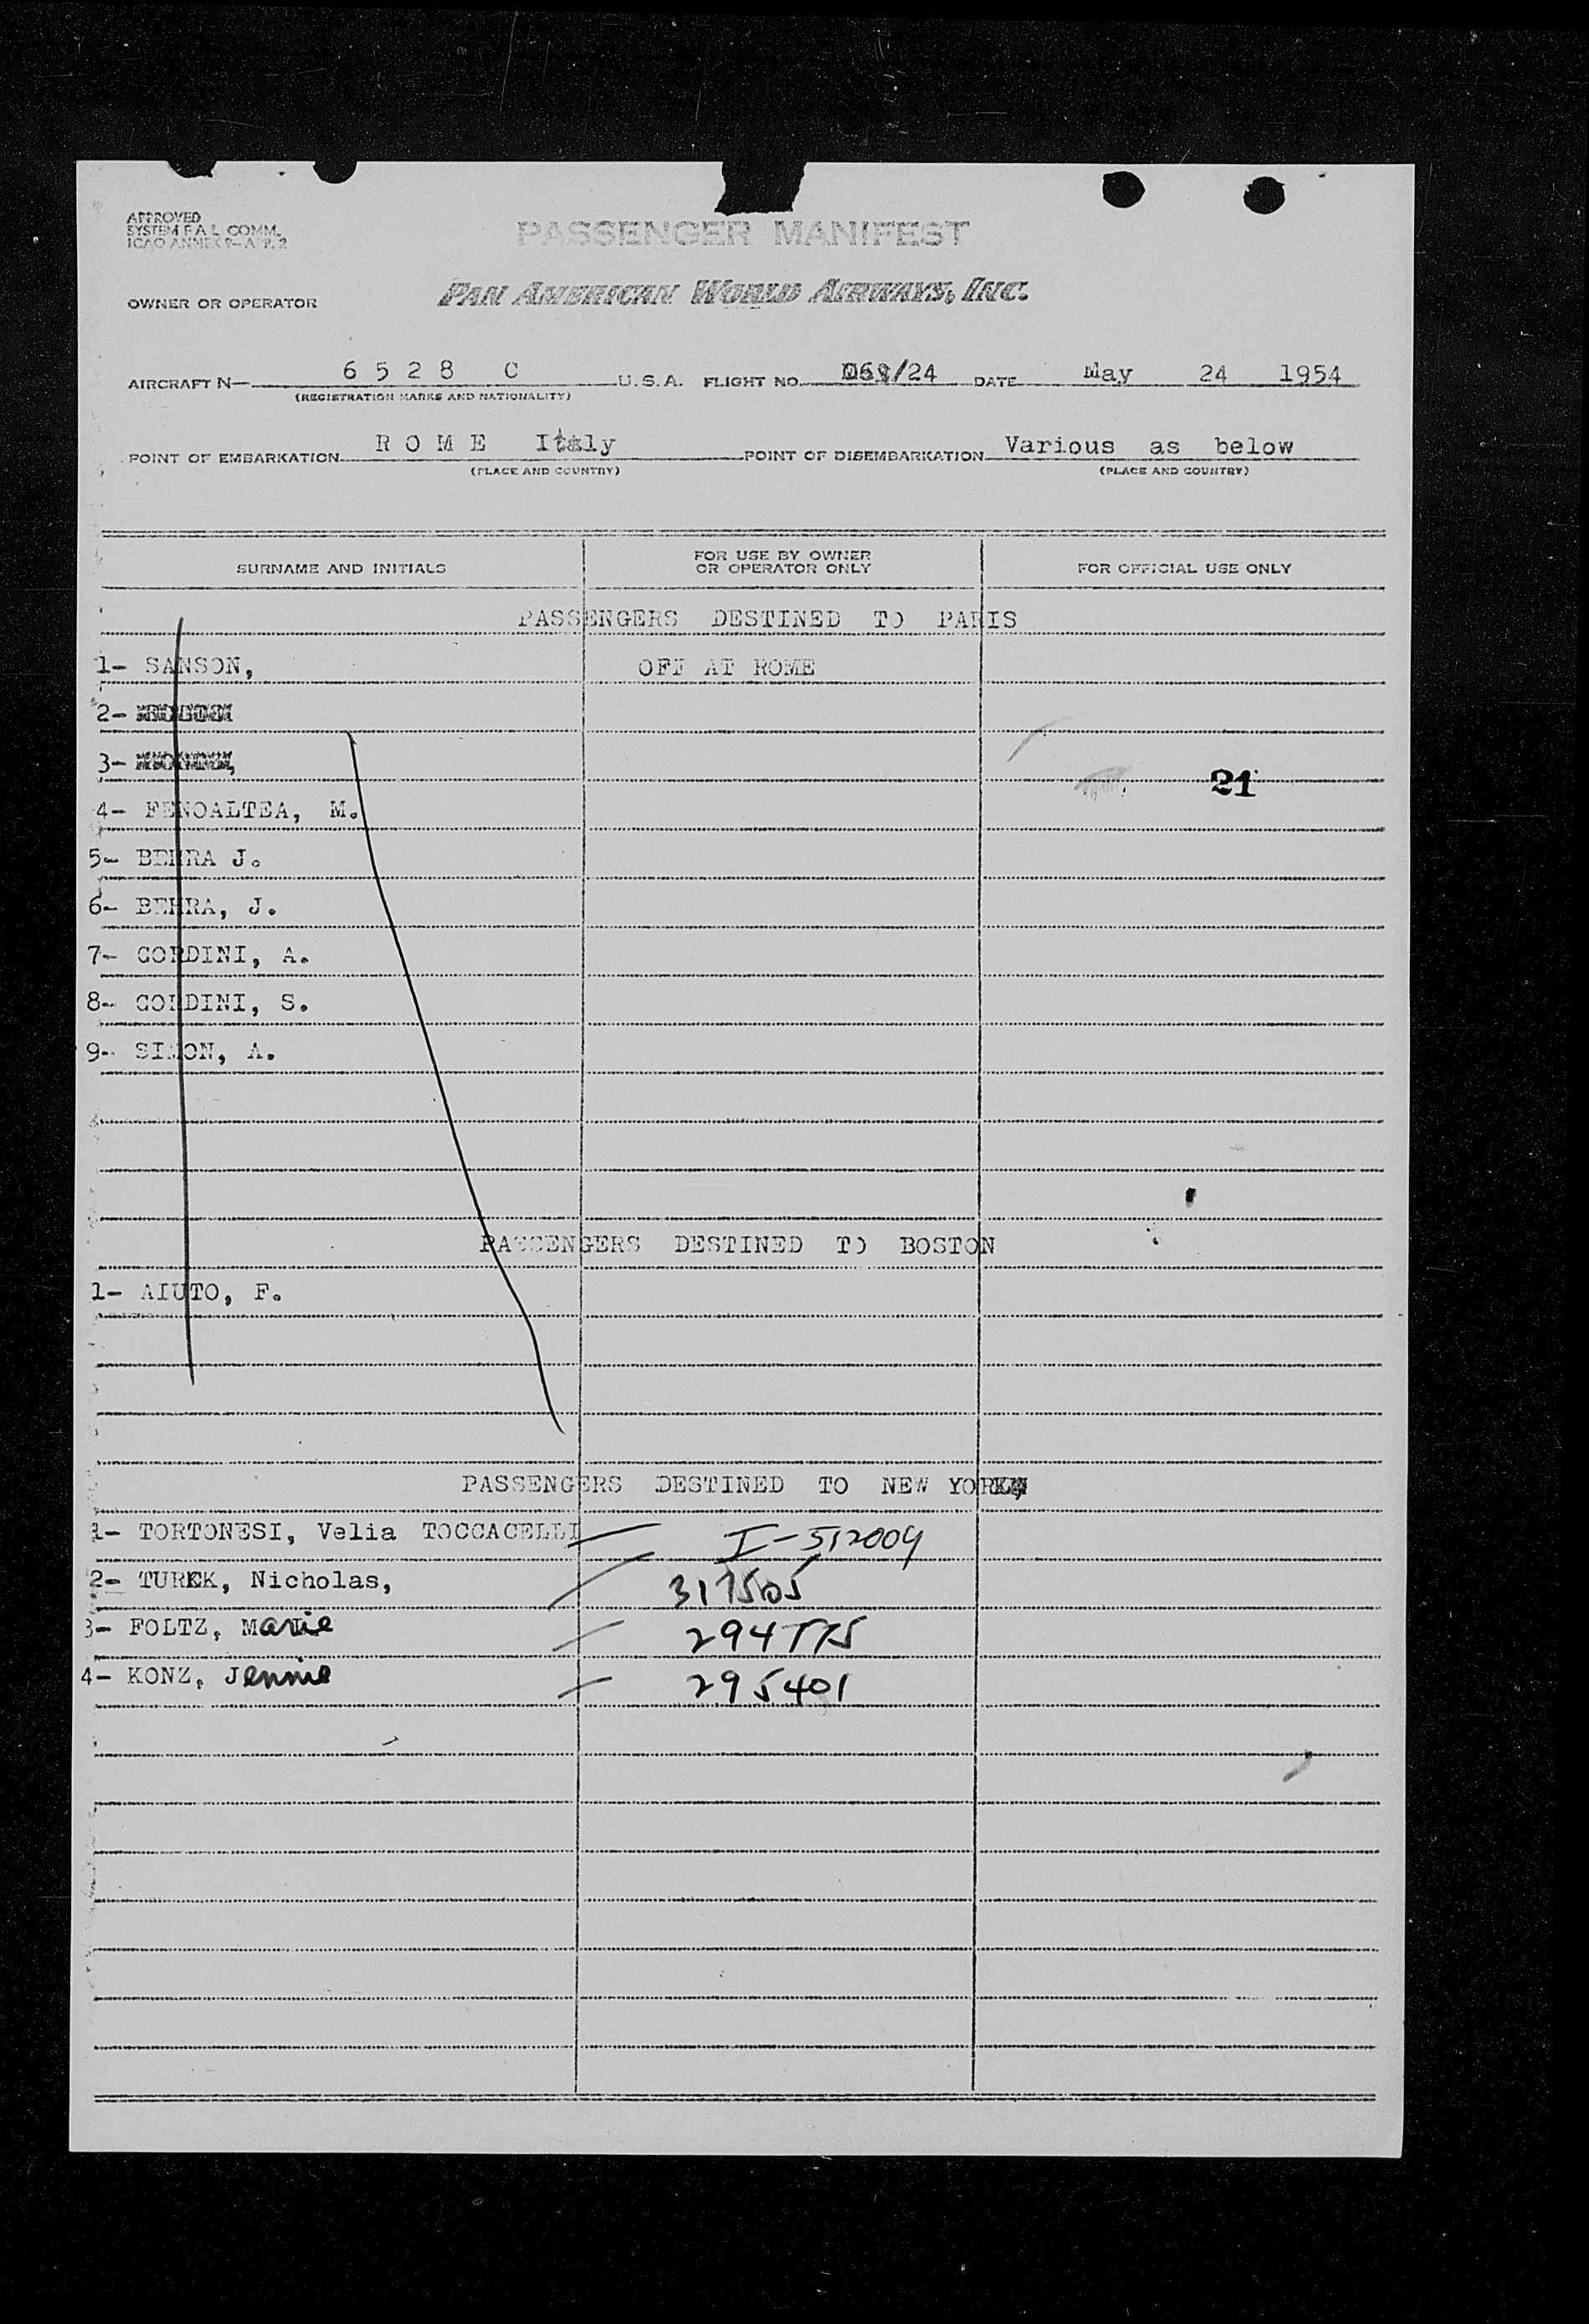 APPROVED
SYSTEM F A L COMM.
ICAO ANNEX 9-APP. 2
PASSENGER MANIFEST
OWNER OR OPERATOR PAN AMERICAN WORLD AIRWAYS, INC.
AIRCRAFT N- 6 5 2 8 C U.S.A. FLIGHT NO. /24 DATE May 24 1954
(REGISTRATION MARKS AND NATIONALITY)
POINT OF EMBARKATION R O M E Italy POINT OF DISEMBARKATION Various as below
(PLACE AND COUNTRY) (PLACE AND COUNTRY)
SURNAME AND INITIALS FOR USE BY OWNER OR OPERATOR ONLY FOR OFFICIAL USE ONLY
PASSENGERS DESTINED TO PARIS
1- SANSON, OFF AT ROME
2-
3-
21
4- FENOALTEA, M.
5- BEHRA J.
6- BEHRA, J.
7- GORDINI, A.
8- GORDINI, S.
9- SIMON, A.
PASSENGERS DESTINED TO BOSTON
1- AIUTO, F.
PASSENGERS DESTINED TO NEW YORK
1- TORTONESI, Velia TOCCACELLI I-512009
2- TUREK, Nicholas, 317505
3- FOLTZ, Marie
4- KONZ, Jennie 295401